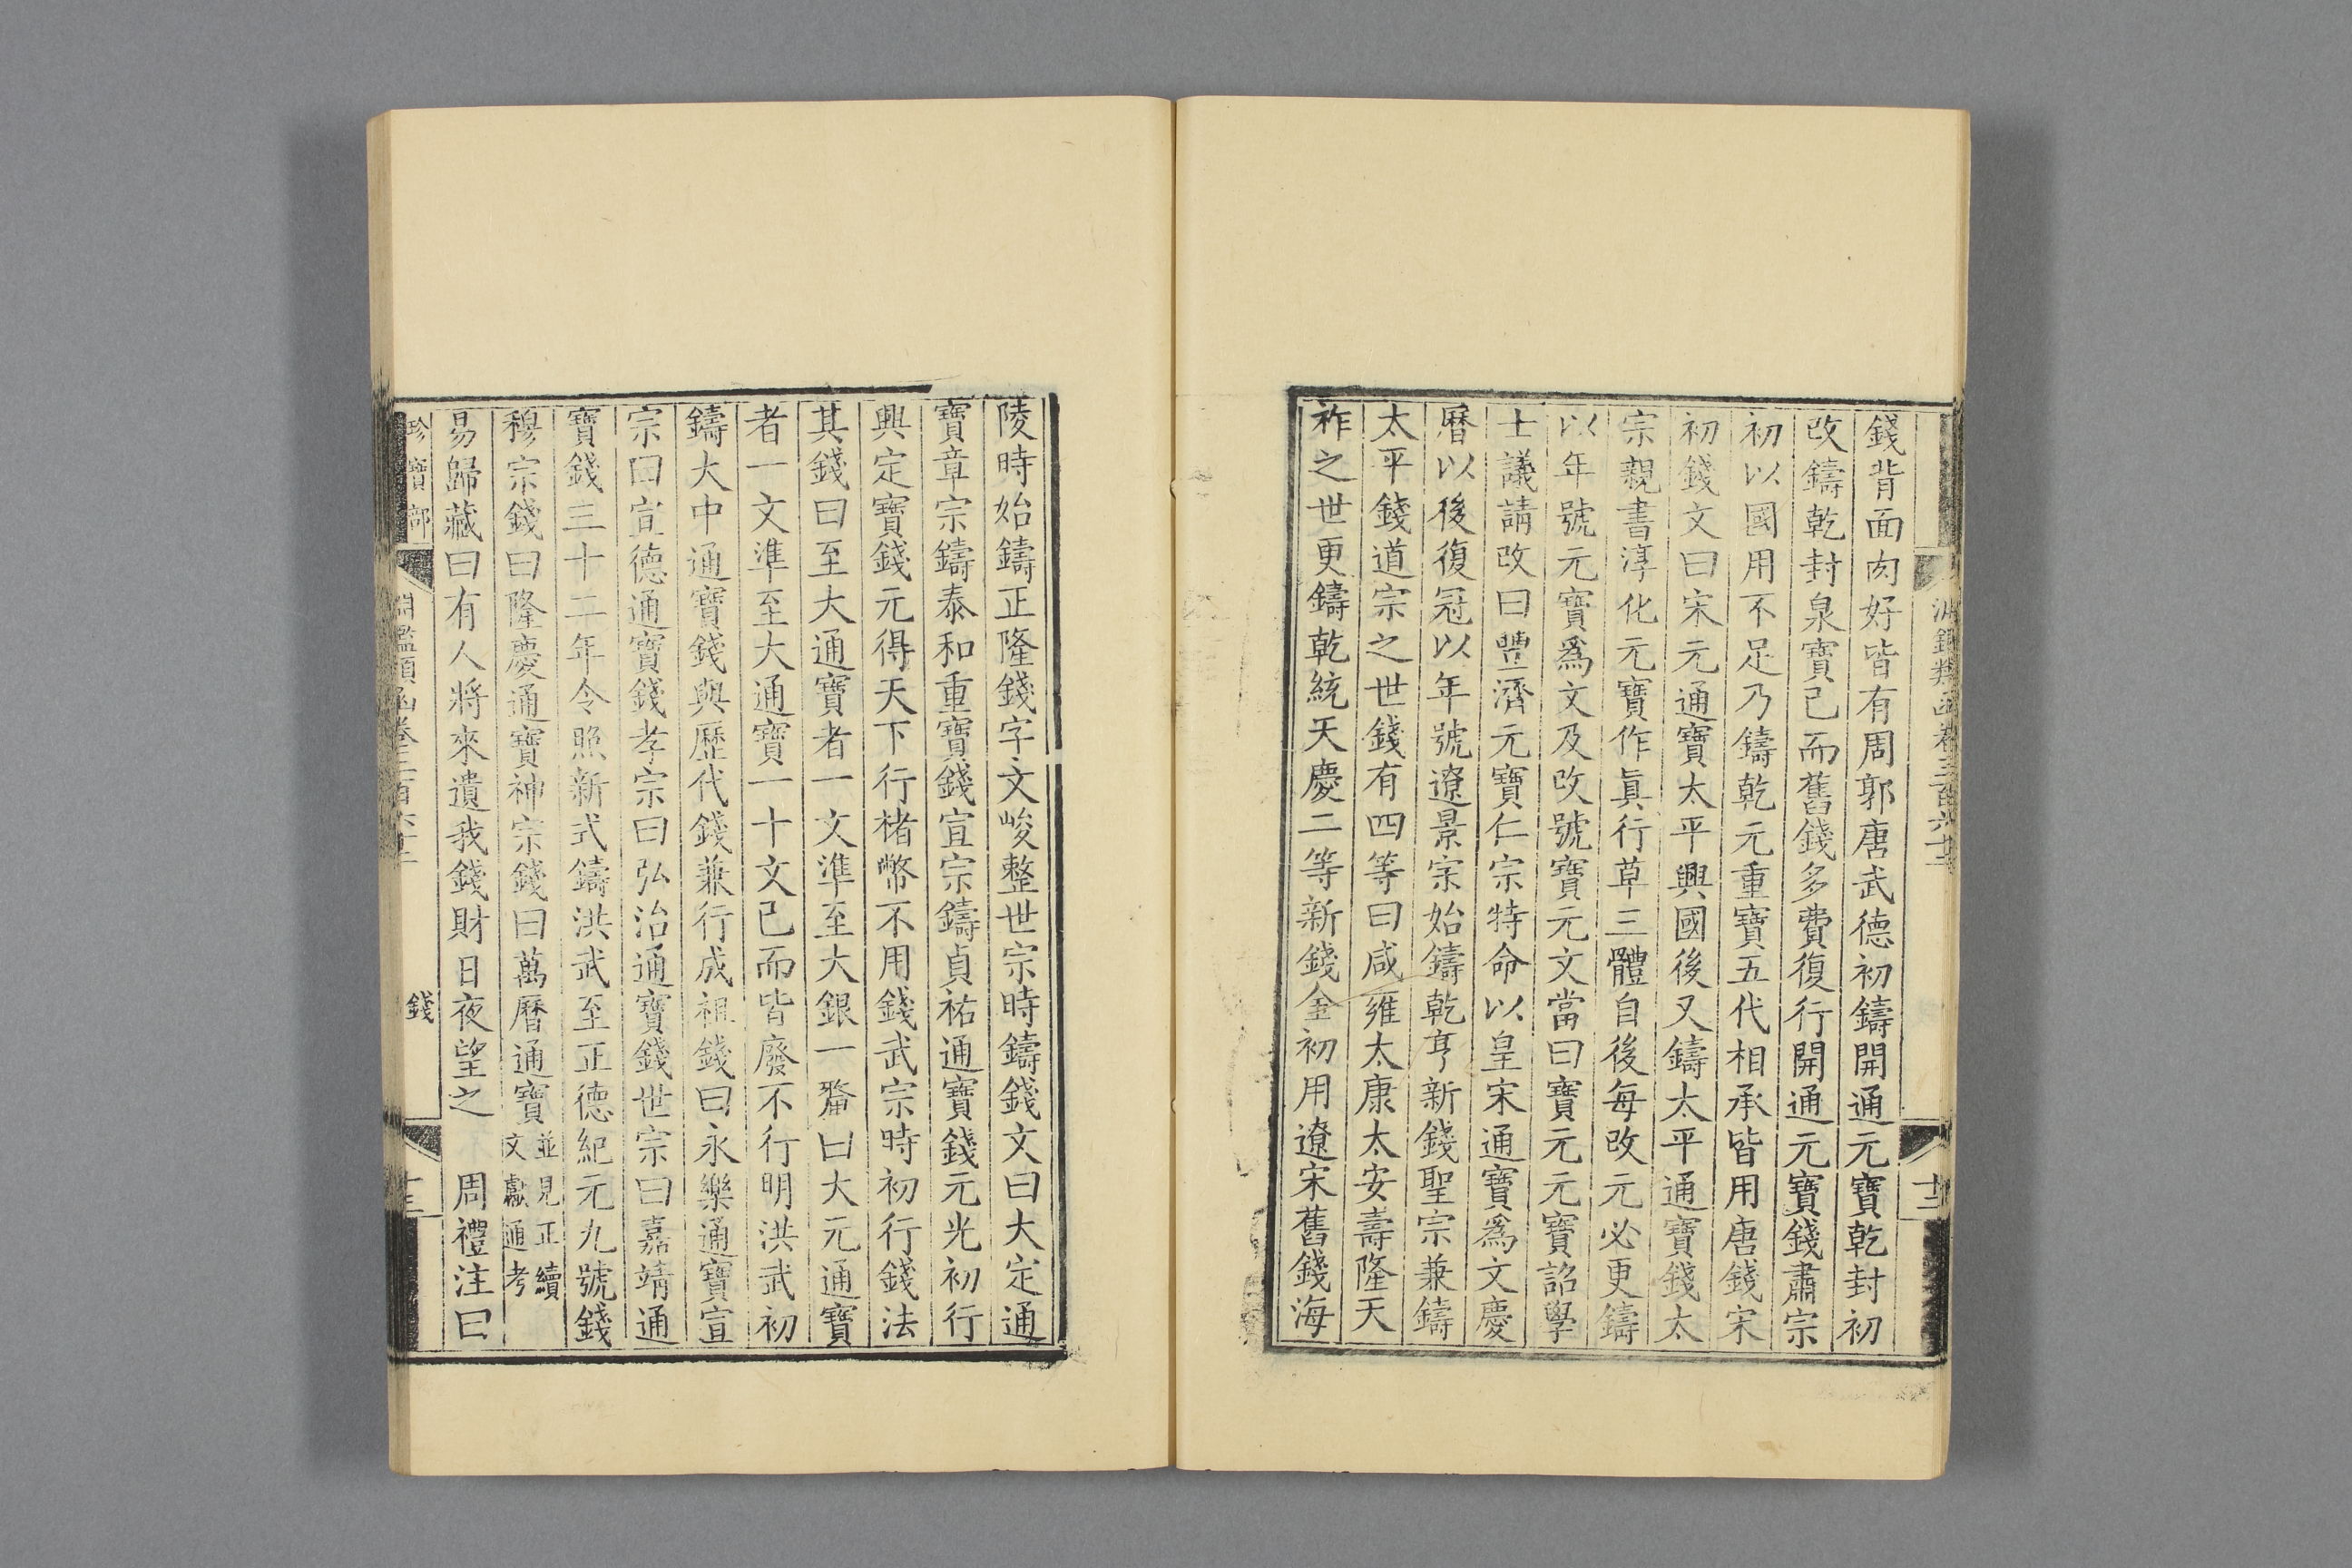 淵鑑類函卷三百六十二
十二
錢背面肉好皆有周郭唐武德初鑄開通元寶乾封初
改鑄乾封泉寶已而舊錢多費復行開通元寶錢肅宗
初以國用不足乃鑄乾元重寶五代相承皆用唐錢宋
初錢文曰宋元通寶太平興國後又鑄太平通寶錢太
宗親書淳化元寶作眞行草三體自後每改元必更鑄
以年號元寶爲文及改號寶元文當曰寶元元寶詔學
士議請改曰豐濟元寶仁宗特命以皇宋通寶爲文慶
曆以後復冠以年號遼景宗始鑄乾亨新錢聖宗兼鑄
太平錢道宗之世錢有四等曰咸雍太康太安壽隆天
祚之世更鑄乾統天慶二等新錢金初用遼宋舊錢海
陵時始鑄正隆錢字文峻整世宗時鑄錢文曰大定通
寶章宗鑄泰和重寶錢宣宗鑄貞祐通寶錢元光初行
興定寶錢元得天下行楮幣不用錢武宗時初行錢法
其錢曰至大通寶者一文準至大銀一釐曰大元通寶
者一文準至大通寶一十文已而皆廢不行明洪武初
鑄大中通寶錢與歷代錢兼行成祖錢曰永樂通寶宣
宗曰宣德通寶錢孝宗曰弘治通寶錢世宗曰嘉靖通
寶錢三十二年令照新式鑄洪武至正德紀元九號錢
穆宗錢曰隆慶通寶神宗錢曰萬曆通寶並見正續
文獻通考
易歸藏曰有人將來遺我錢財日夜望之　周禮注曰
珍寶部
淵鑑類函卷三百六十二
錢
十三